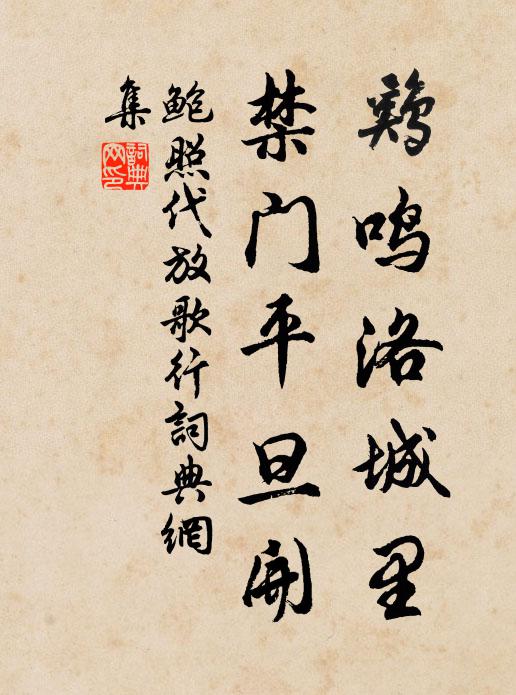 鷄鸣洛城里
禁门平旦开
鲍照代放歌行詞典網
集
詞典
网印